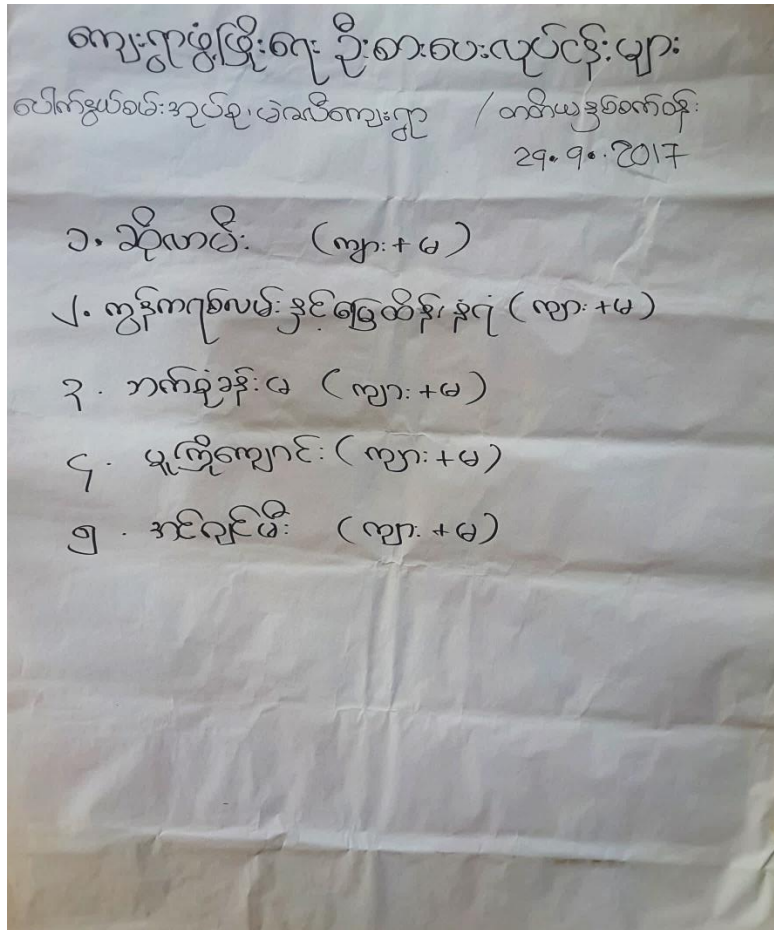 ကျေးရွာဖွံ့ဖြိုးရေး ဦးစားပေးလုပ်ငန်းများ
ပေါက်နွယ်စမ်းအုပ်စု၊ မဲခလီကျေးရွာ / တတိယနှစ်စက်ဝန်း
29.9.2017
၁. ဆိုလာမီး (ကျား+မ)
၂. ကွန်ကရစ်လမ်းနှင့်မြေထိန်းနံရံ (ကျား+မ)
၃. ဘက်စုံခန်းမ (ကျား+မ)
၄. မူကြိုကျောင်း (ကျား+မ)
၅. အင်ဂျင်မီး (ကျား+မ)